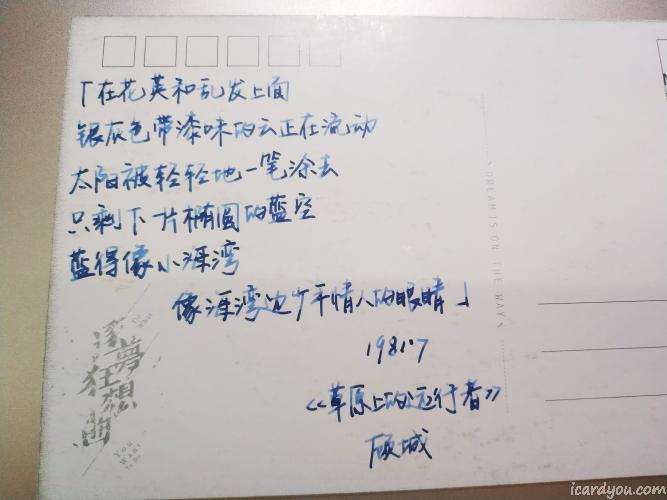 「在花英和乱发上面
银灰色带漆味的云正在流动
太阳被轻轻地一笔涂去
只剩下一片椭圆的蓝空
蓝得像小海湾
像海湾边少年情人的眼睛」
1981.7
《草原上的远行者》
顾城
DREAM IS ON THE WAY
逐夢狂想曲
You Want To Be
icardyou.com